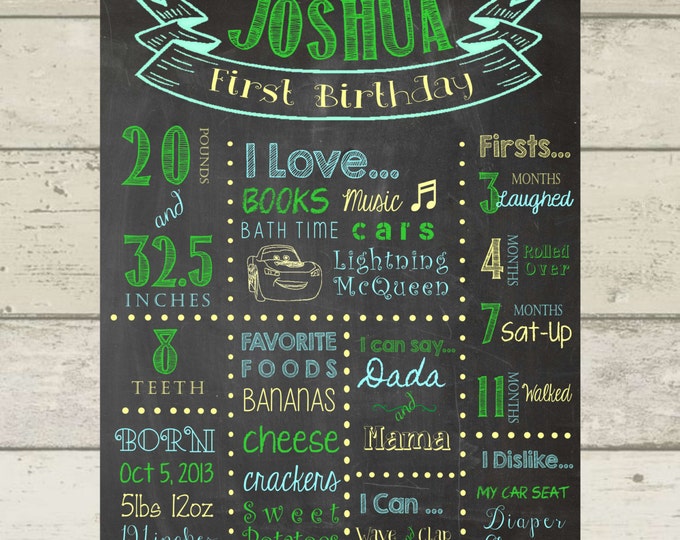 JOSHUA
First Birthday
20
POUNDS
and
32.5
INCHES
8
TEETH
BORN
Oct 5, 2013
5lbs 12oz
I Love...
BOOKS Music
BATH TIME cars
Lightning
McQueen
FAVORITE
FOODS
BANANAS
cheese
crackers
Sweet
Potatoes
I can say...
Dada
and
Mama
I Can ...
Wave and Clap
Firsts...
3 MONTHS
Laughed
4 MONTHS
Rolled
Over
7 MONTHS
Sat-Up
11 MONTHS
Walked
I Dislike...
MY CAR SEAT
Diaper